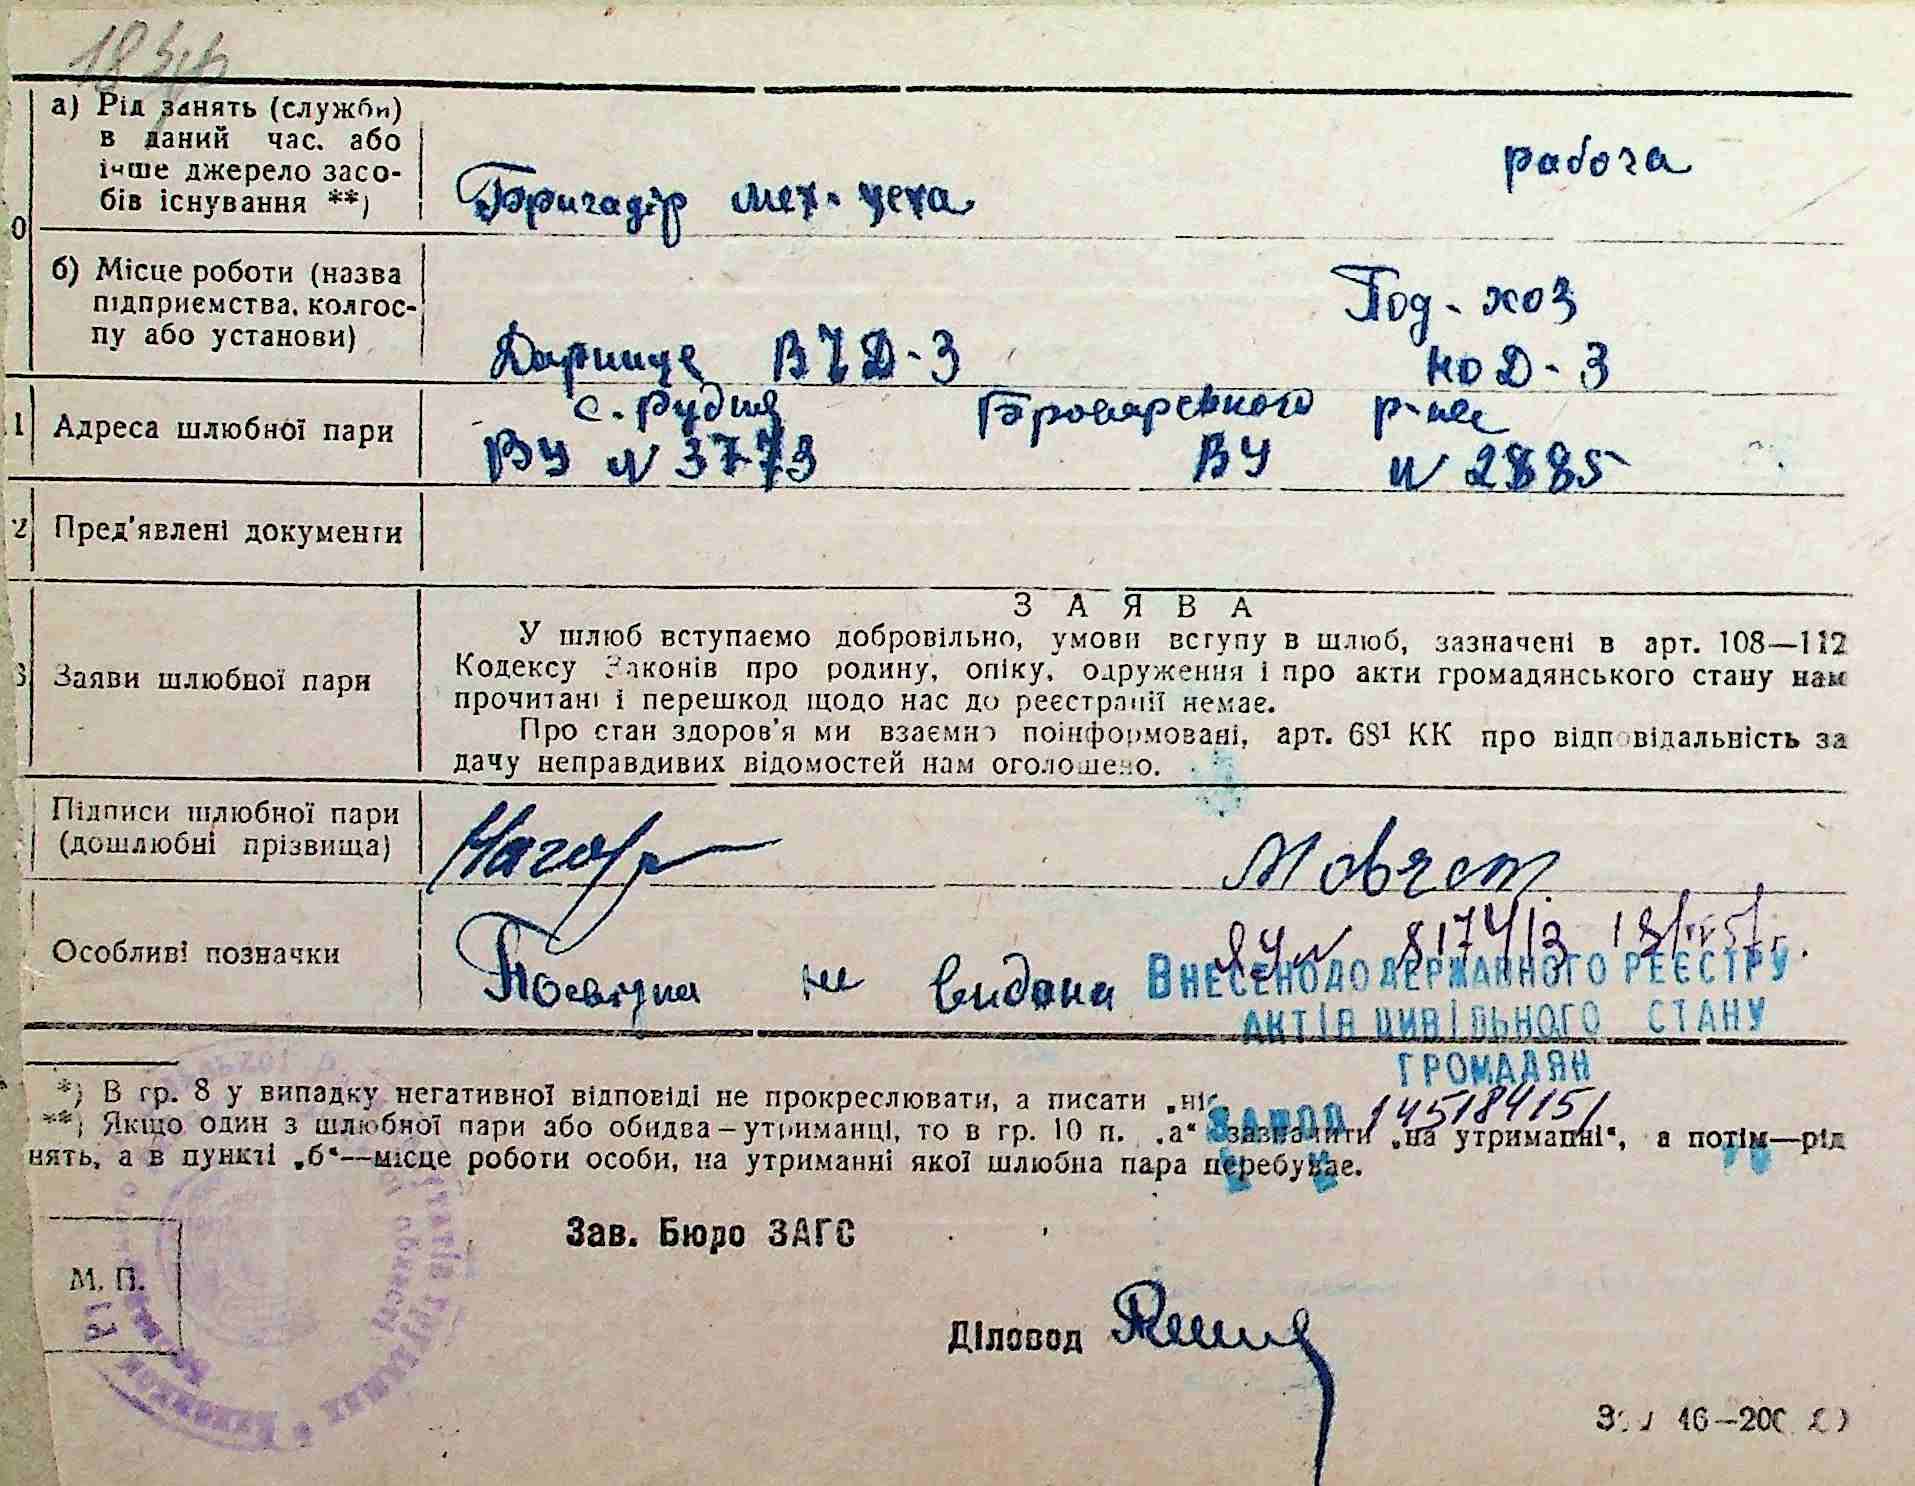 а) Рід занять (служби)
в даний час. або
інше джерело засо-
бів існування **)
Бригадір мех. цеха
рабоча
0
б) Місце роботи (назва
підприємства, колгос-
пу або установи)
Дарниця ВЧД-3
Под-хоз
НОД-3
1
Адреса шлюбної пари
с. Рудня Броварского р-на
ВУ N 3773 ВУ N 2885
2
Пред'явлені документи
ЗАЯВА
3
Заяви шлюбної пари
У шлюб вступаємо добровільно, умови вступу в шлюб, зазначені в арт. 108—112
Кодексу Законів про родину, опіку, одруження і про акти громадянського стану нам
прочитані і перешкод щодо нас до реєстрації немає.
Про стан здоров'я ми взаємно поінформовані, арт. 68¹ КК про відповідальність за
дачу неправдивих відомостей нам оголошено.
Підписи шлюбної пари
(дошлюбні прізвища)
Особливі позначки
Посвідка не видана
ВНЕСЕНО ДО ДЕРЖАВНОГО РЕЄСТРУ
АКТІВ ЦИВІЛЬНОГО СТАНУ
ГРОМАДЯН
*) В гр. 8 у випадку негативної відповіді не прокреслювати, а писати „ні“
**) Якщо один з шлюбної пари або обидва—утриманці, то в гр. 10 п. „а“ зазначити „на утриманні“, а потім—рід
нять, а в пункті „б“—місце роботи особи, на утриманні якої шлюбна пара перебуває.
Зав. Бюро ЗАГС
М. П.
Діловод